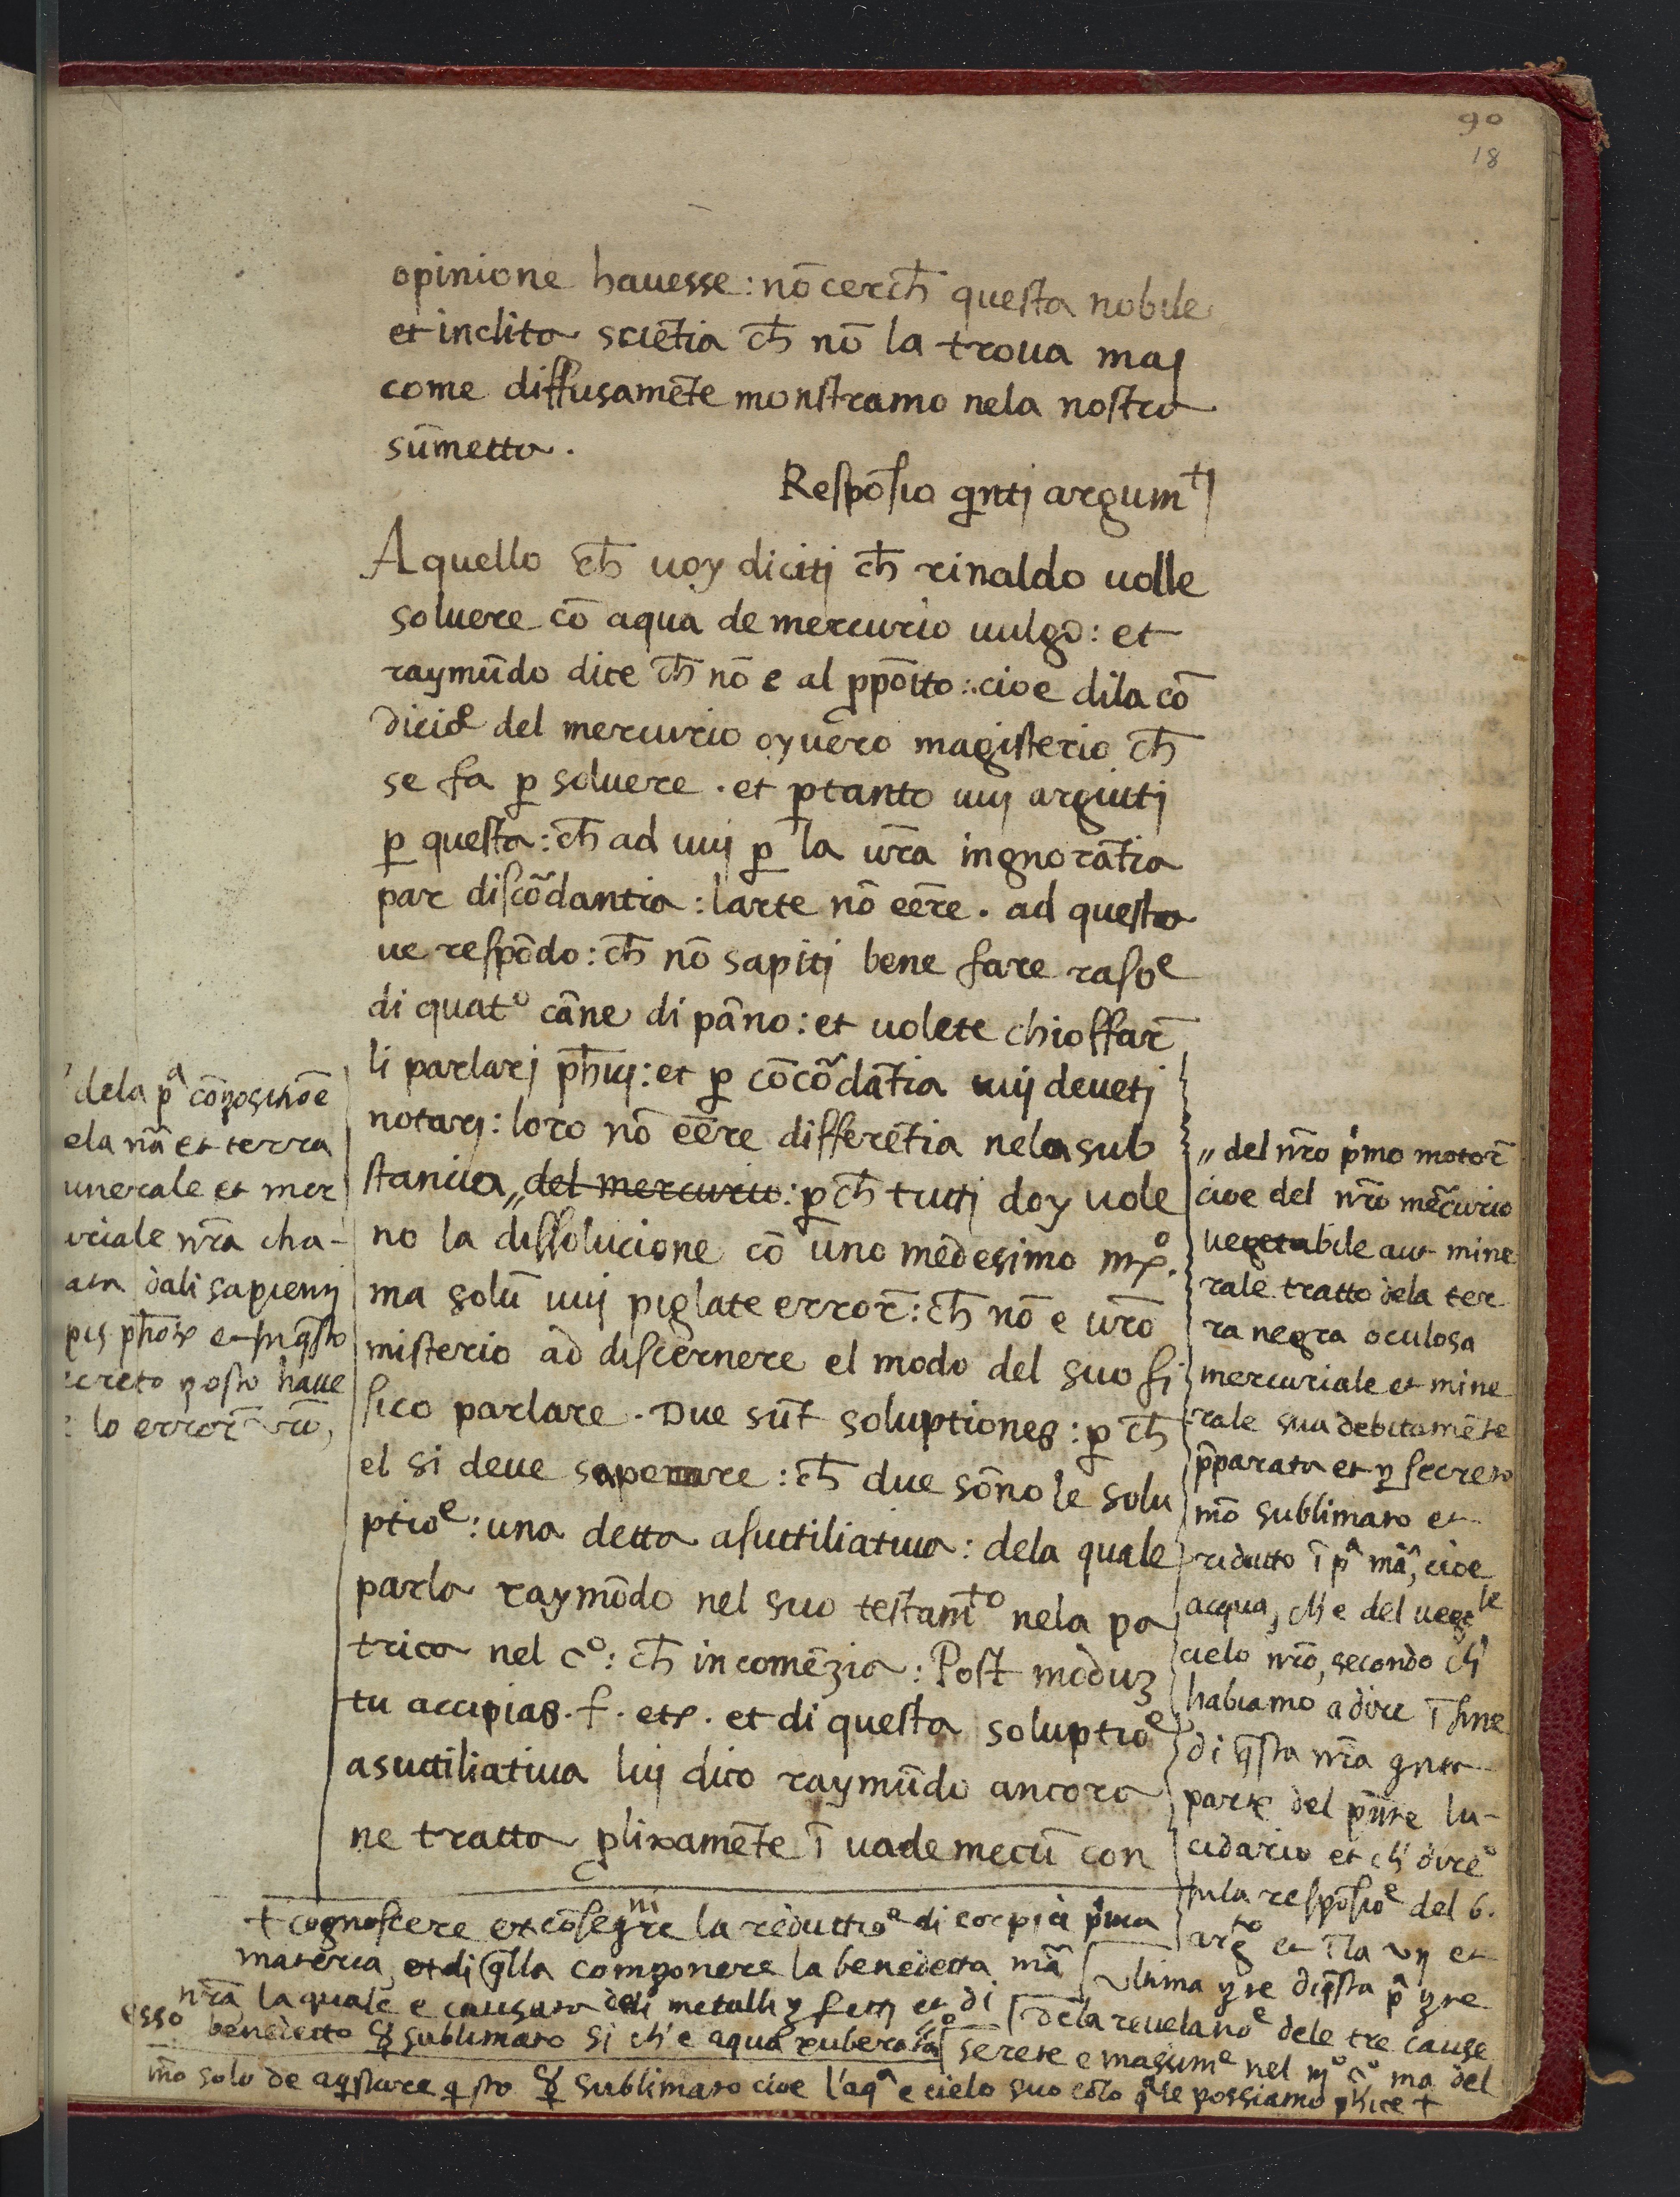 90
18
opinione hauesse: nō cerch̄ questa nobile
et inclita sciētia ch̄ nō la troua maj
come diffusamēte monstramo nela nostra
sūmetta.
Respōsio qnti argumtj
A quello ch̄ uoy dicitj ch̄ rinaldo uolle
soluere cō aqua de mercurio uulgo: et
raymūdo dice ch̄ nō e al ꝓpōito: cioe dila cō
dicioe del mercurio oyuero magisterio ch̄
se fa ꝑ soluere. et ꝑtanto uuj arguitj
ꝑ questa: ch̄ ad uuj ꝑ la ur̄a ingnorātia
par discōdantia: larte nō eēre. ad questo
ue respōdo: ch̄ nō sapitj bene fare rasoe
di quato cāne di pāno: et uolete chioffar̄
li parlarj ph̄ij: et ꝑ cōcōdātia uuj deuetj
notarj: loro nō eēre differētia nela sub
stancia „ del mercurio: ꝑch̄ tuttj doy uole
no la dissolucione cō uno medesimo
ma solū uuj piglate error̄: ch̄ nō e ur̄o
misterio ad discernere el modo del suo fi
sico parlare. Due sūt soluptiones: ꝑ ch̄
el si deue sapere: ch̄ due sōno le solu
ptioe: una detta asuttiliatiua: dela quale
parla raymōdo nel suo testamto nela pa
trica nel co: ch̄ incomēzia: Post moduꝫ
tu accipias. f. etc. et di questa soluptioe
asuttiliatiua luj dico raymūdo ancora
ne tratta ꝓlixamēte ī uade mecū con
dela pa
ela nā et terra
unerale et mer
uriale nr̄a cha-
ata dali sapientj
ph̄or et in q̄sto
ecreto posto haue
lo error̄ ur̄o,
„ del nr̄o pi̇mo motor̄
cioe del nr̄o mercurio
uegetabile aut mine
rale tratto dela ter
ra negra oculosa
mercuriale et mine
rale sua debitamēte
p̄parata et ꝑ secreto
mō sublimato et
riducto ī pa mā, cioe
acqua, ch' e del uegle
cielo nr̄o, secondo ch'
habiamo a dire ī fine
di q̄sta nr̄a qnta
parte del pn̄te lu-
cidario et ch' diro
inla respōsioe del 6.
argto et ī la et
ultima pte di q̄sta pa pte
dela reuelatioe dele tre cause
serete e maxume nel co ma del
+ cognoscere et la reductioe di corpi ī pi̇ma
materia, et di q̄lla componere la benedetta mā
nr̄a la quale e causata deli metalli et di
esso benedetto sublimato si ch' e aqua
mō solo de aq̄stare q̄sto sublimato cioe l'aqa e cielo suo possiamo +